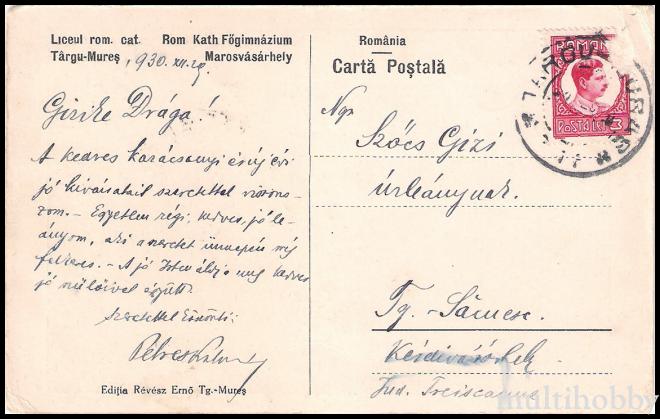 Liceul rom. cat.
Rom Kath Főgimnázium
Târgu-Mureș
Marosvásárhely
930. XII. 29.
Gizike Drága!
A kedves karácsonyi és új évi
jó kívánatait szeretettel viszon-
zom. - Egyetlen régi, kedves, jó le-
ányom, aki a szeretet ünnepén még
felkeres. - A jó Isten áldja meg kedves
jó szülőivel együtt.
Szeretettel
Ediția Révész Ernő Tg.-Mureș
România
Cartă Poștală
ROMANIA
POSTA LEI 3
Ngs
Szőcs Gizi
úrleánynak.
Tg. - Săcuesc.
Kézdivásárhely
Jud. Treiscaune
multihobby